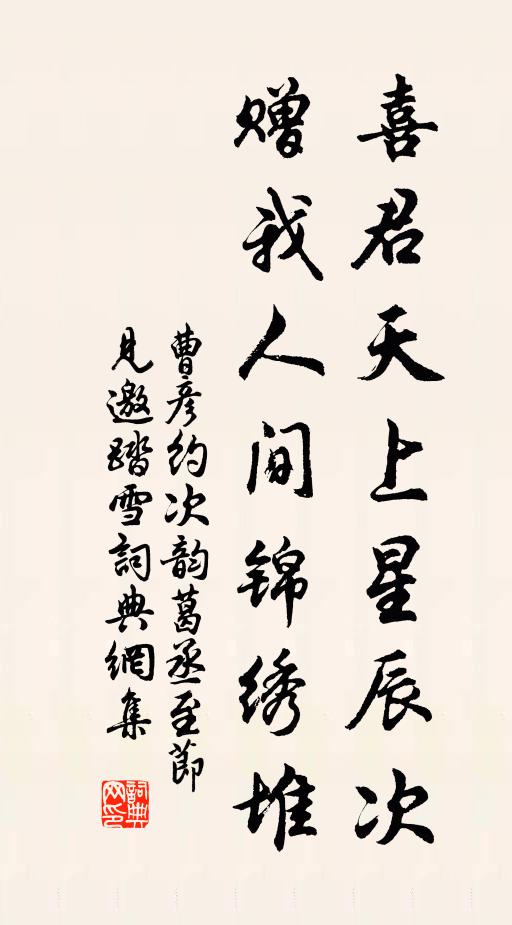 喜君天上星辰次
赠我人间锦绣堆
曹彦约次韵葛丞至節
見邀踏雪詞典網集
詞典網印